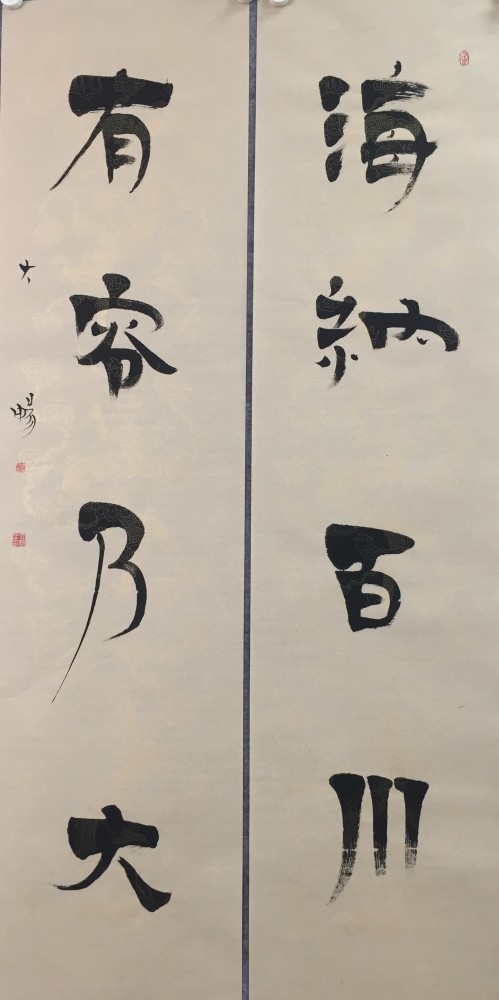 海納百川
有容乃大
大暢